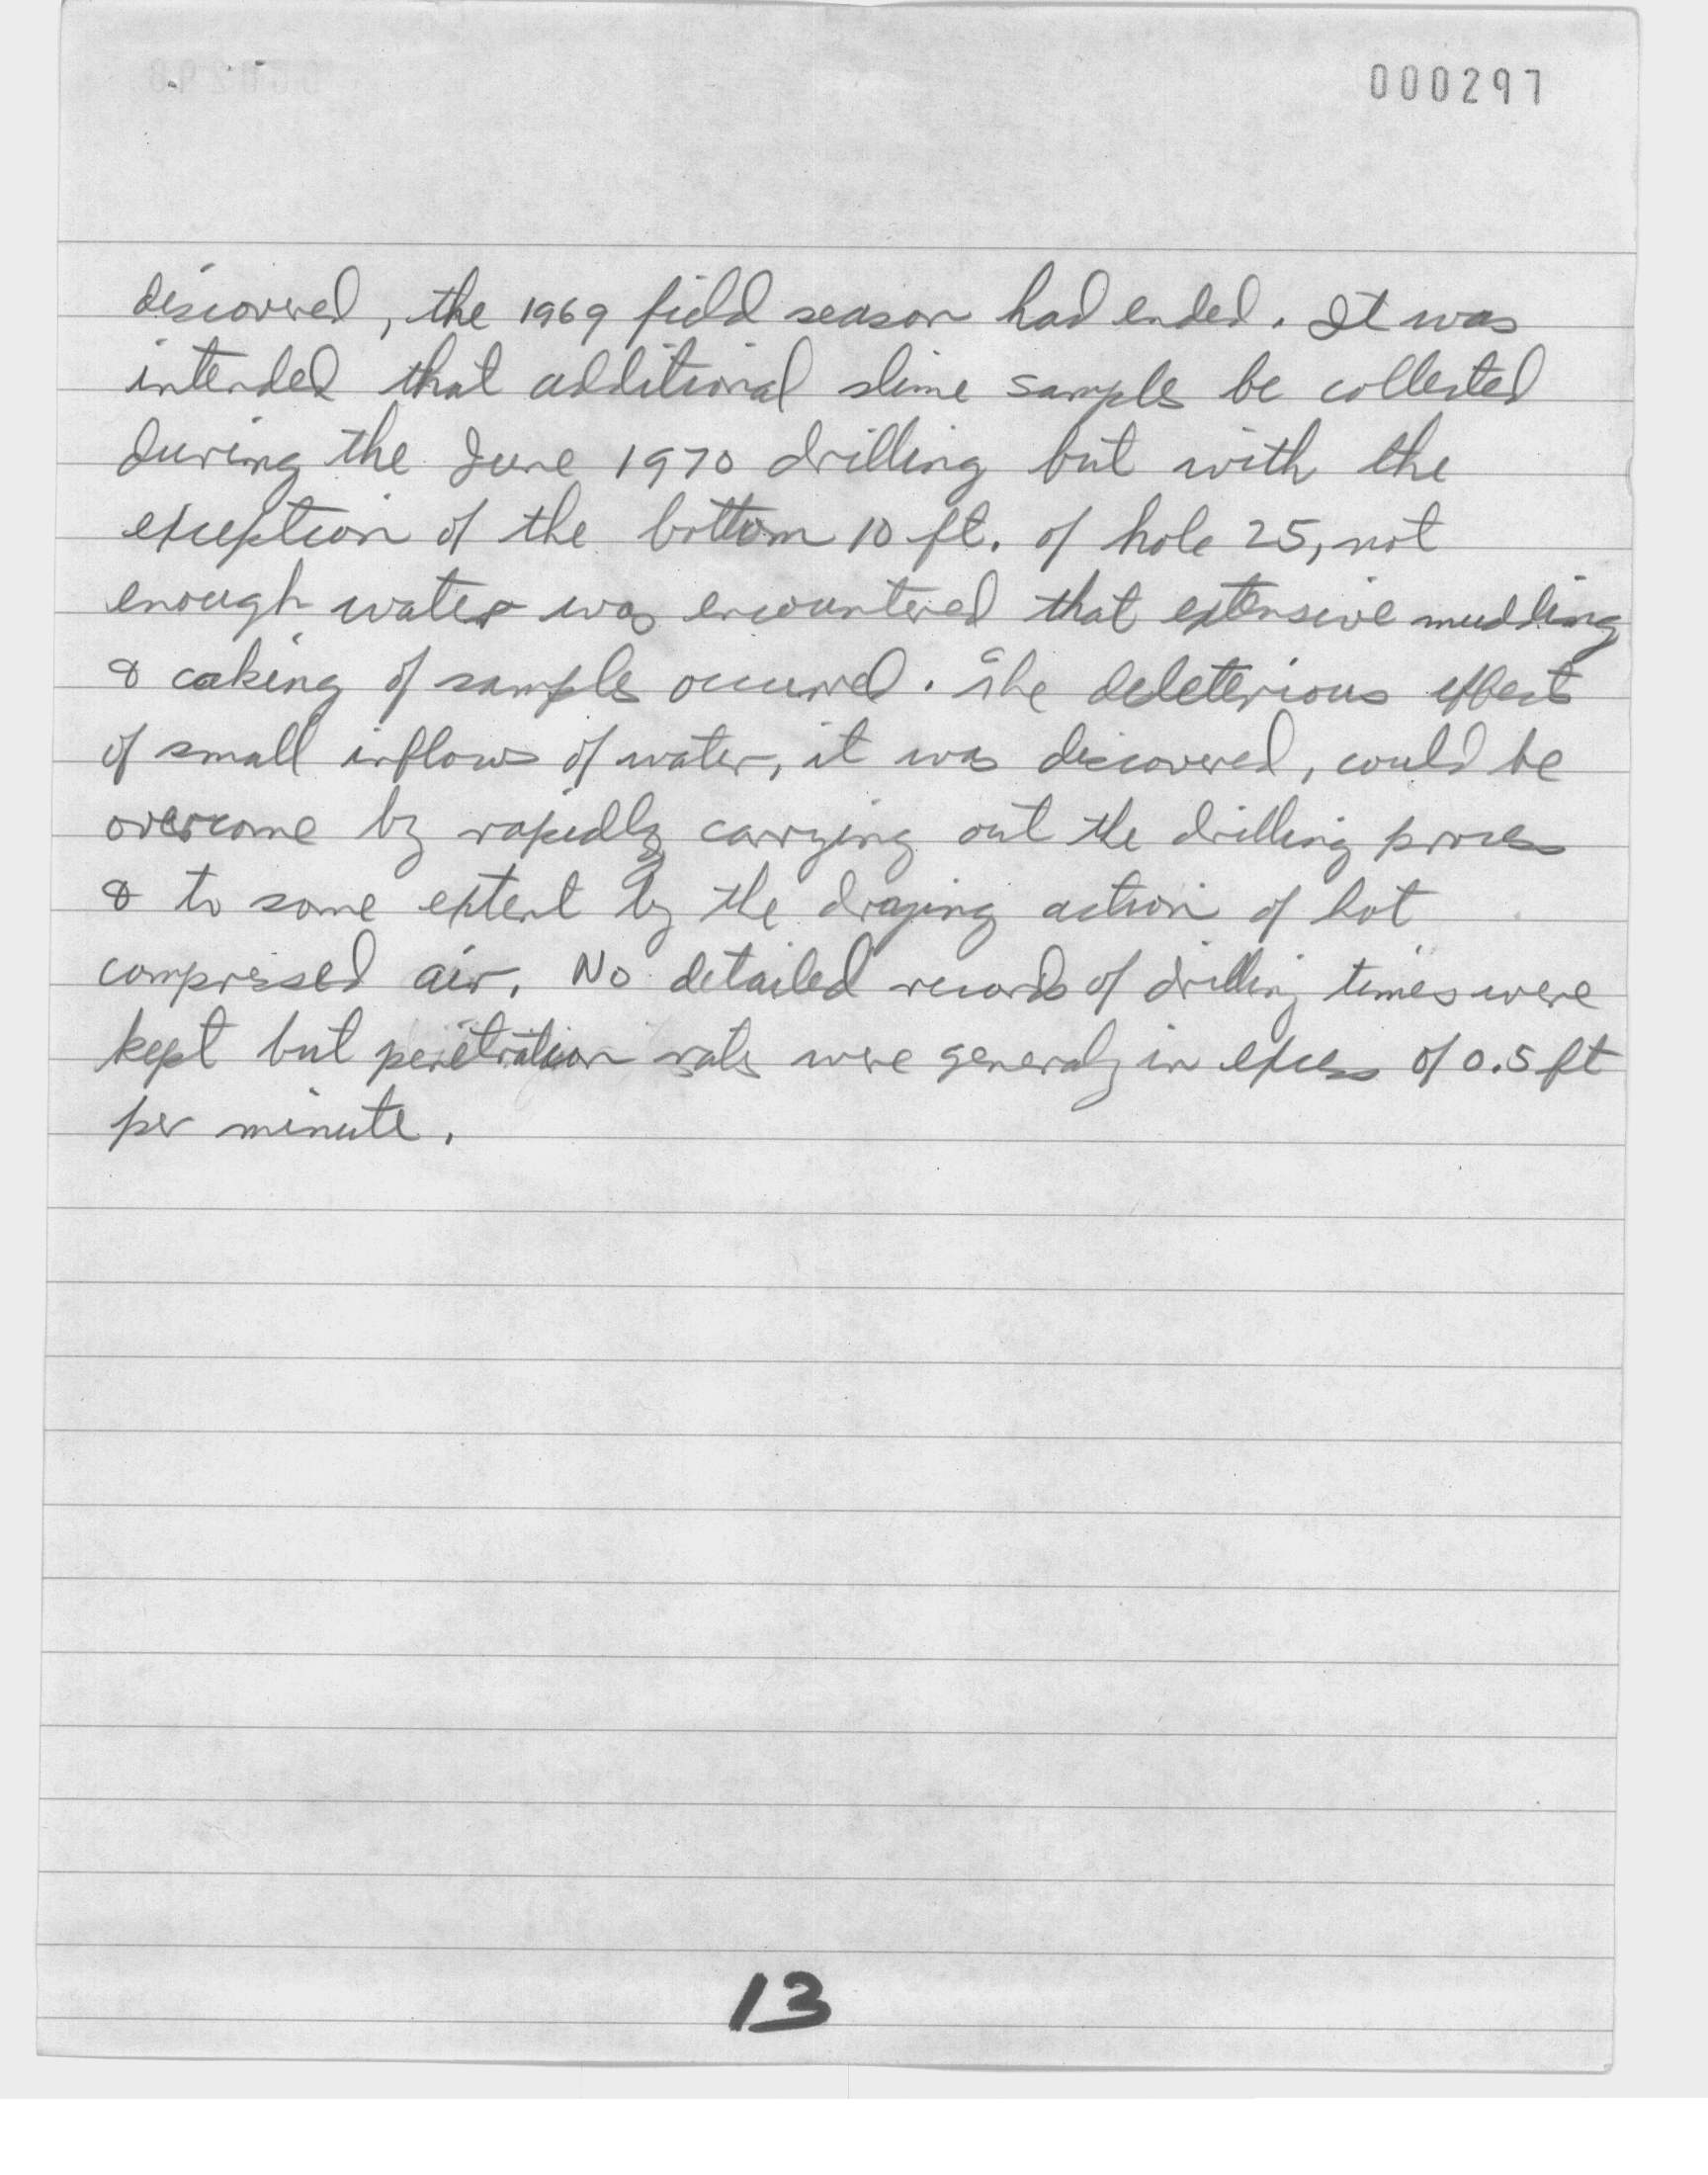 000297
discovered, the 1969 field season had ended. It was
intended that additional slime samples be collected
during the June 1970 drilling but with the
exception of the bottom 10 ft. of hole 25, not
enough water was encountered that extensive mudding
& caking of samples occurred. The deleterious effects
of small inflows of water, it was discovered, could be
overcome by rapidly carrying out the drilling process
& to some extent by the drying action of hot
compressed air. No detailed records of drilling times were
kept but penetration rates were generaly in excess of 0.5 ft
per minute.
13